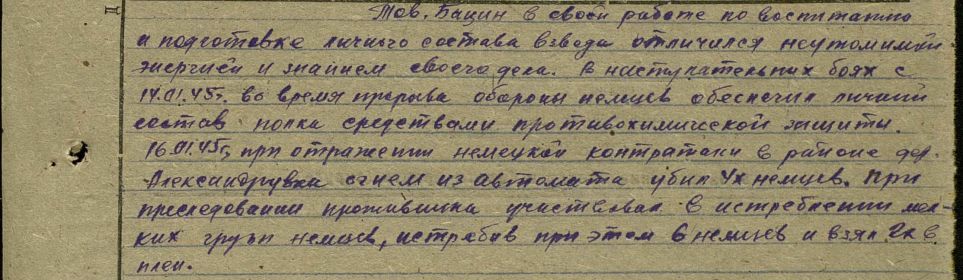 Тов. Бацин в своей работе по воспитанию
и подготовке личного состава взвода отличился неутомимой
энергией и знанием своего дела. В наступательных боях с
14.01.45г. во время прорыва обороны немцев обеспечил личный
состав полка средствами противохимической защиты.
16.01.45г. при отражении немецкой контратаки в районе дер.
Александрувка огнем из автомата убил 4х немцев. При
преследовании противника участвовал в истреблении мел-
ких групп немцев, истребив при этом 6 немцев и взял 2х в
плен.